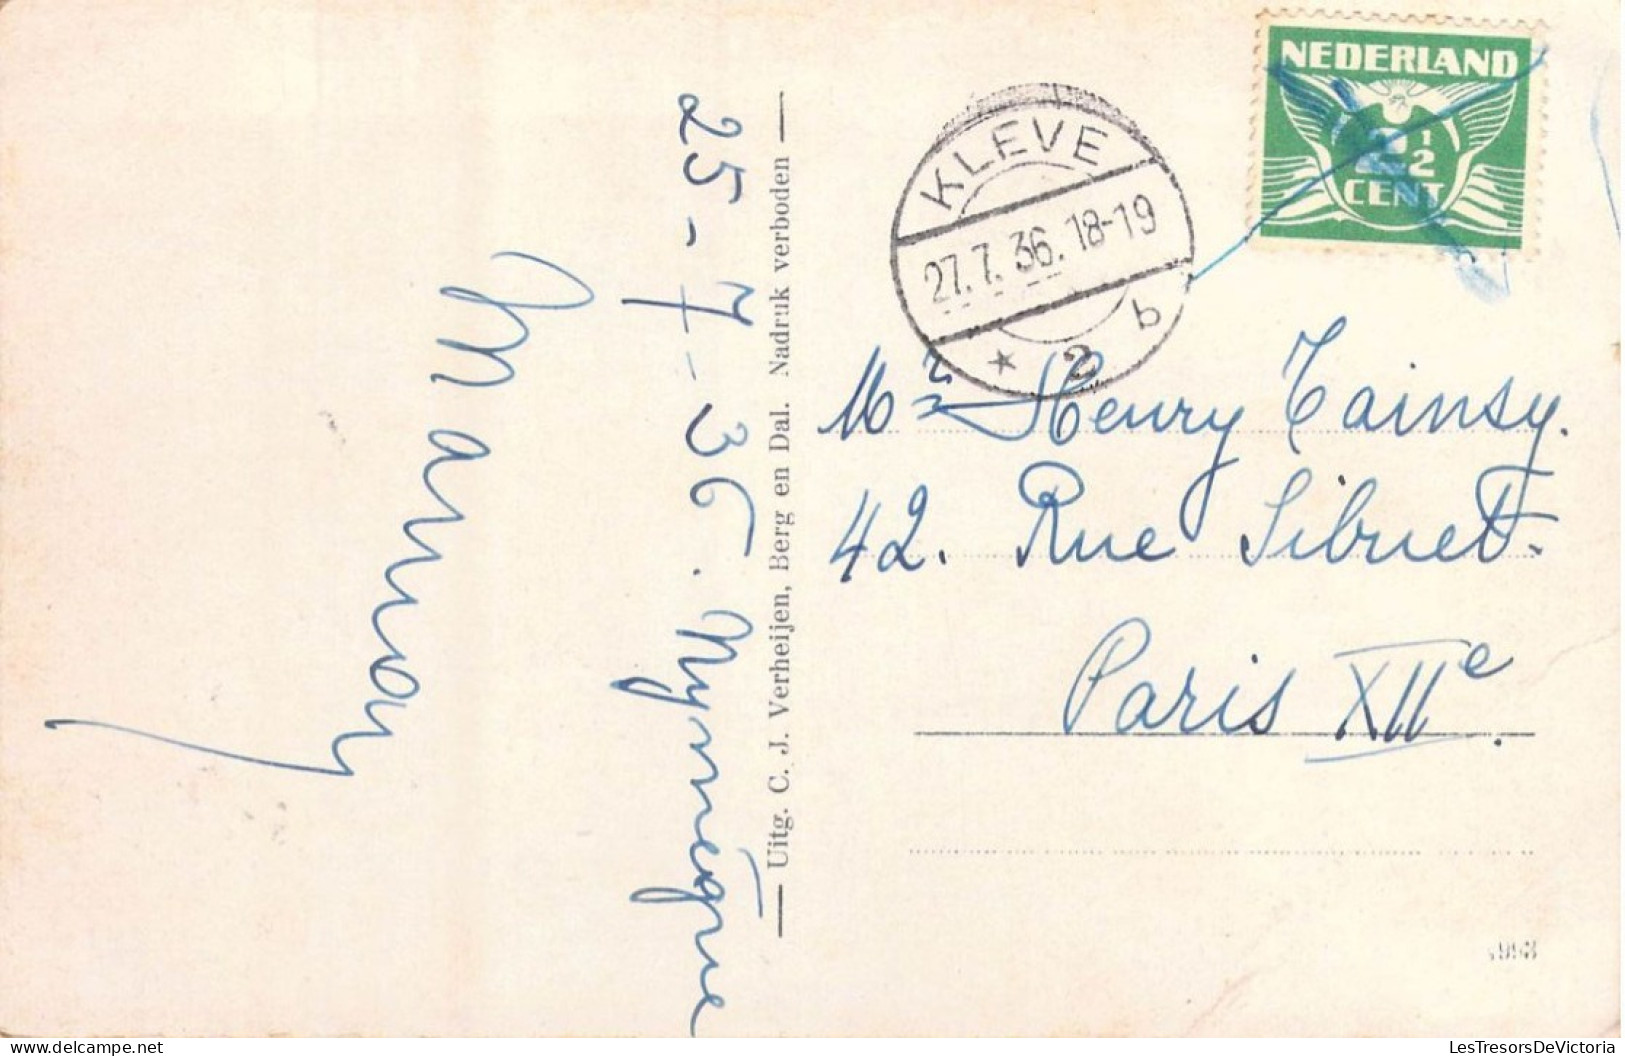 NEDERLAND
2½
CENT
KLEVE
27.7.36.18-19
* 2 b
25-7-36. Nymnègue
Uitg. C. J. Verheijen, Berg en Dal. Nadruk verboden
Mr Henry Tainsy.
42. Rue Sibuet.
Paris XIIe.
delcampe.net
LesTresorsDeVictoria